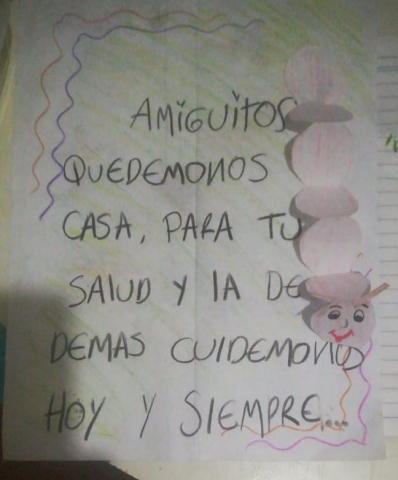 AMiGUitOS
QUEDEMONOS
CASA, PARA TU
SALUD Y lA DE
DEMAS CUIDEMONOS
HOY Y SIEMPRE...